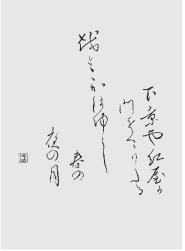 下京や紅屋が
門をくぐりたる
をとこかはゆし
春の
夜の月